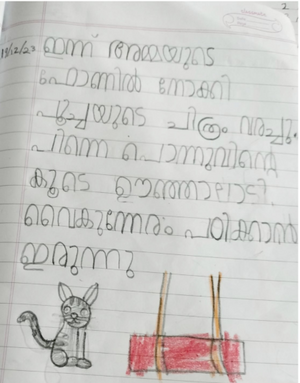 2
19/12/23 ഇന്ന് അമ്മയുടെ
ഫോണിൽ നോക്കി
പൂച്ചയുടെ ചിത്രം വരച്ചു.
പിന്നെ പൊന്നുവിന്റെ
കൂടെ ഊഞ്ഞാലാടി.
വൈകുന്നേരം പഠിക്കാൻ
ഇരുന്നു